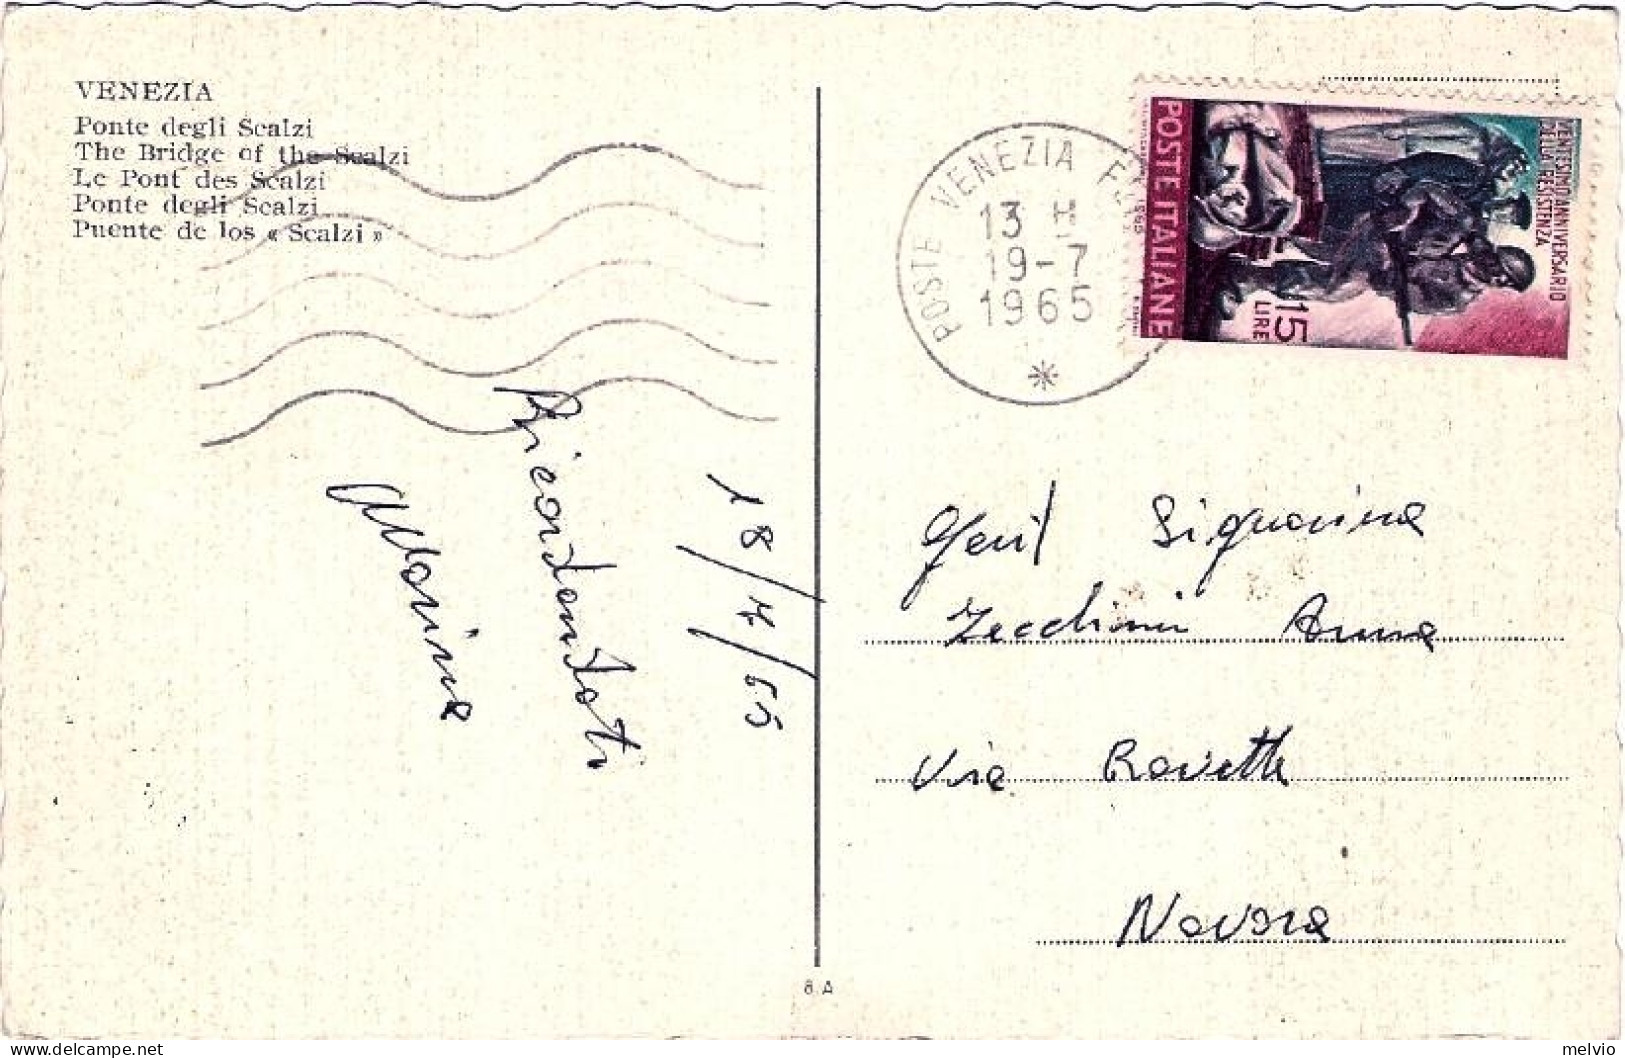 VENEZIA
Ponte degli Scalzi
The Bridge of the Scalzi
Le Pont des Scalzi
Ponte degli Scalzi
Puente de los « Scalzi »
POSTE VENEZIA
13 H
19-7
1965
POSTE ITALIANE
VENTESIMO ANNIVERSARIO
DELLA RESISTENZA
15
LIRE
1965
18/7/65
Ricordandoti
Marina
Gent Signorina
Zecchini Anna
Via
Novara
8.A
melvio